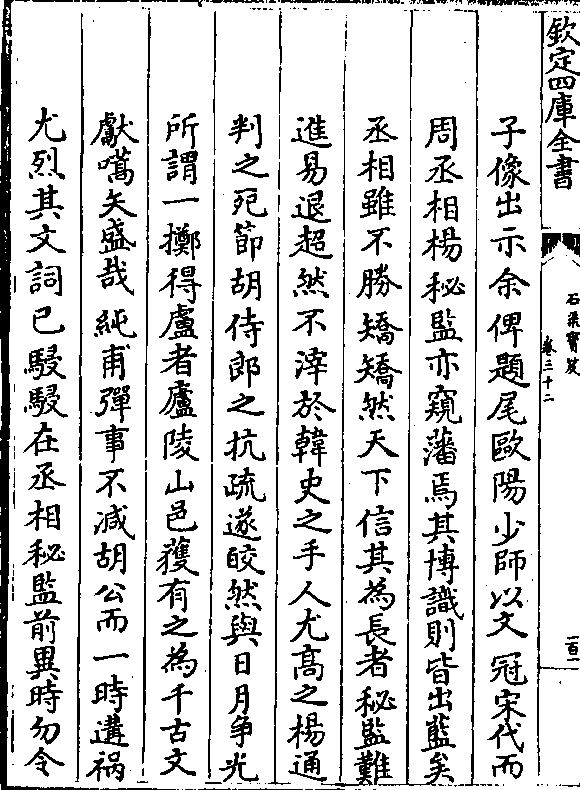 欽定四庫全書
石渠寶笈
卷三十二
一百一
子像出示余俾題尾歐陽少師以文冠宋代而
周丞相楊秘監亦窺藩焉其博識則皆出藍矣
丞相雖不勝矯矯然天下信其為長者秘監難
進易退超然不滓於韓史之手人尤髙之楊通
判之死節胡侍郎之抗疏遂皎然與日月争光
所謂一擲得盧者廬陵山邑獲有之為千古文
獻嚆矢盛哉純甫彈事不減胡公而一時遘禍
尤烈其文詞已駸駸在丞相秘監前異時勿令